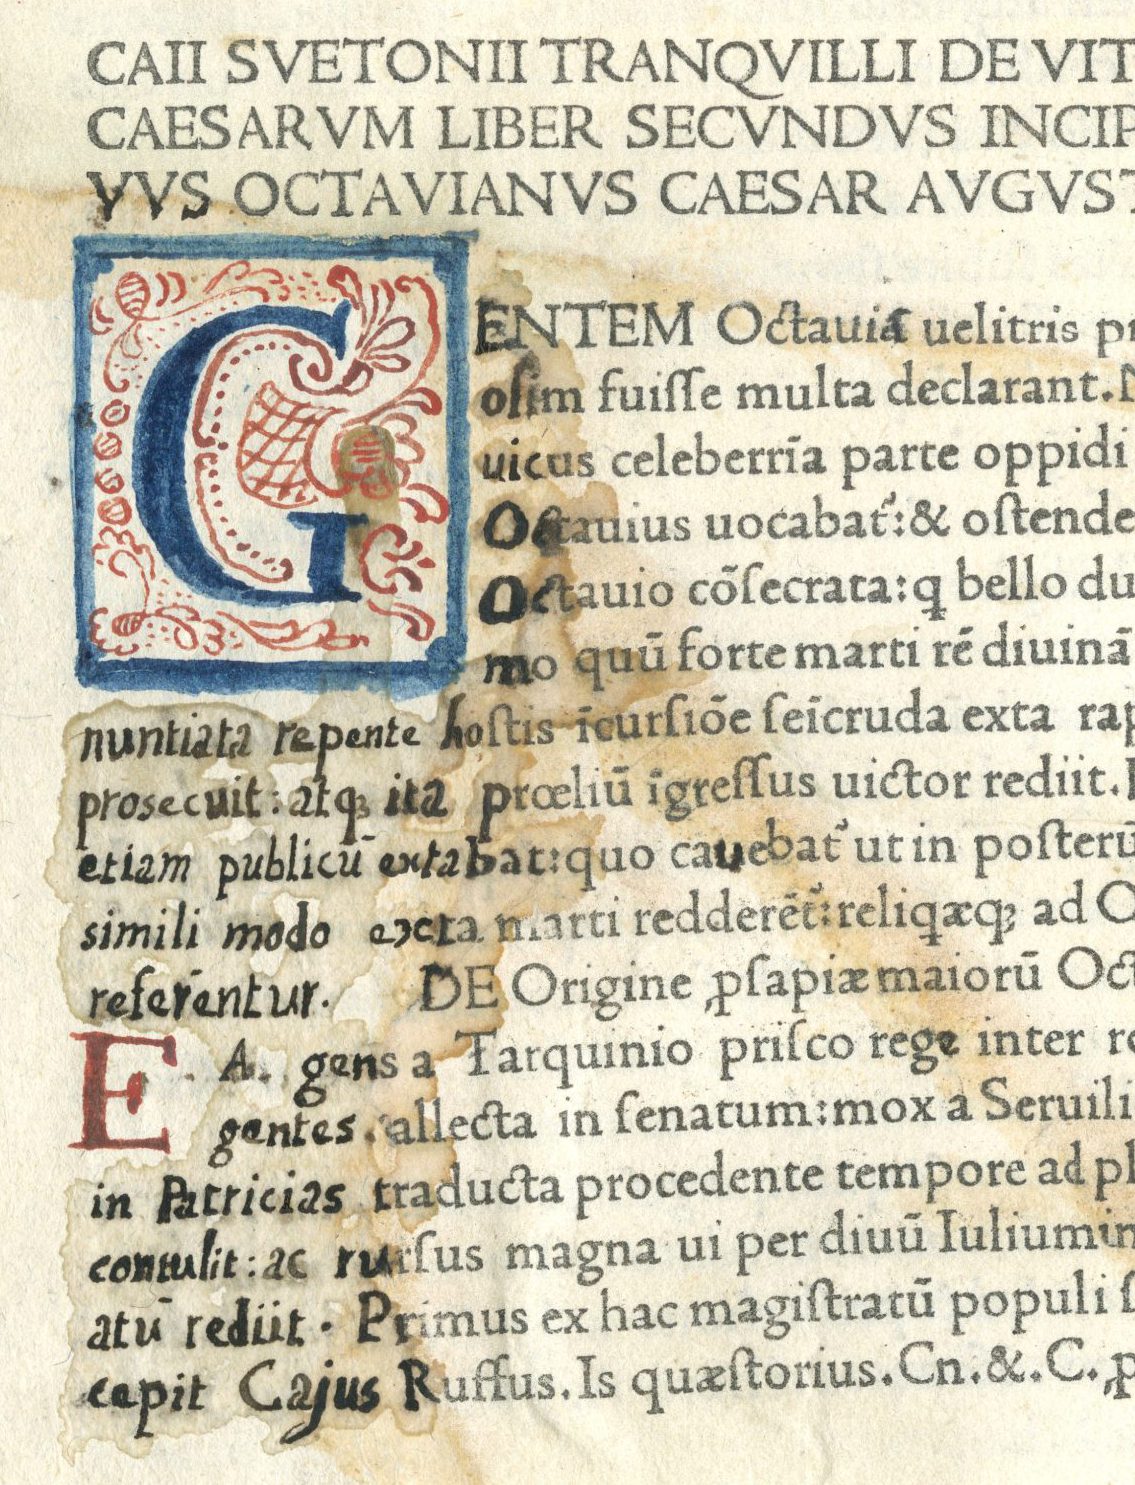 CAII SVETONII TRANQVILLI DE VIT
CAESARVM LIBER SECVNDVS INCIP
VVS OCTAVIANVS CAESAR AVGVST
GENTEM Octauiã uelitris pr
olim fuiſſe multa declarant. N
uicus celeberrĩa parte oppidi
Octauius uocabat᷑: & oſtende
Octauio cõſecrata: q bello du
mo quũ forte marti rẽ diuinã
nuntiata repente hoſtis ĩcurſiõe ſeĩcruda exta rap
prosecuit: atqꝫ ita prœliũ ĩgreſſus uictor rediit.
etiam publicũ extabat: quo cauebat᷑ ut in poſterũ
simili modo excta marti redderẽt᷑: reliqæqꝫ ad O
referẽntur. DE Origine ꝓſapiæ maiorũ Oct
EA. gens a Tarquinio priſco rege inter ro
gentes. allecta in ſenatum: mox a Seruili
in Patricias traducta procedente tempore ad pl
contulit: ac rurſus magna ui per diuũ Iulium in
atũ rediit. Primus ex hac magiſtratũ populi ſ
cepit Cajus Ruffus. Is quæſtorius. Cn. &. C. ꝓ